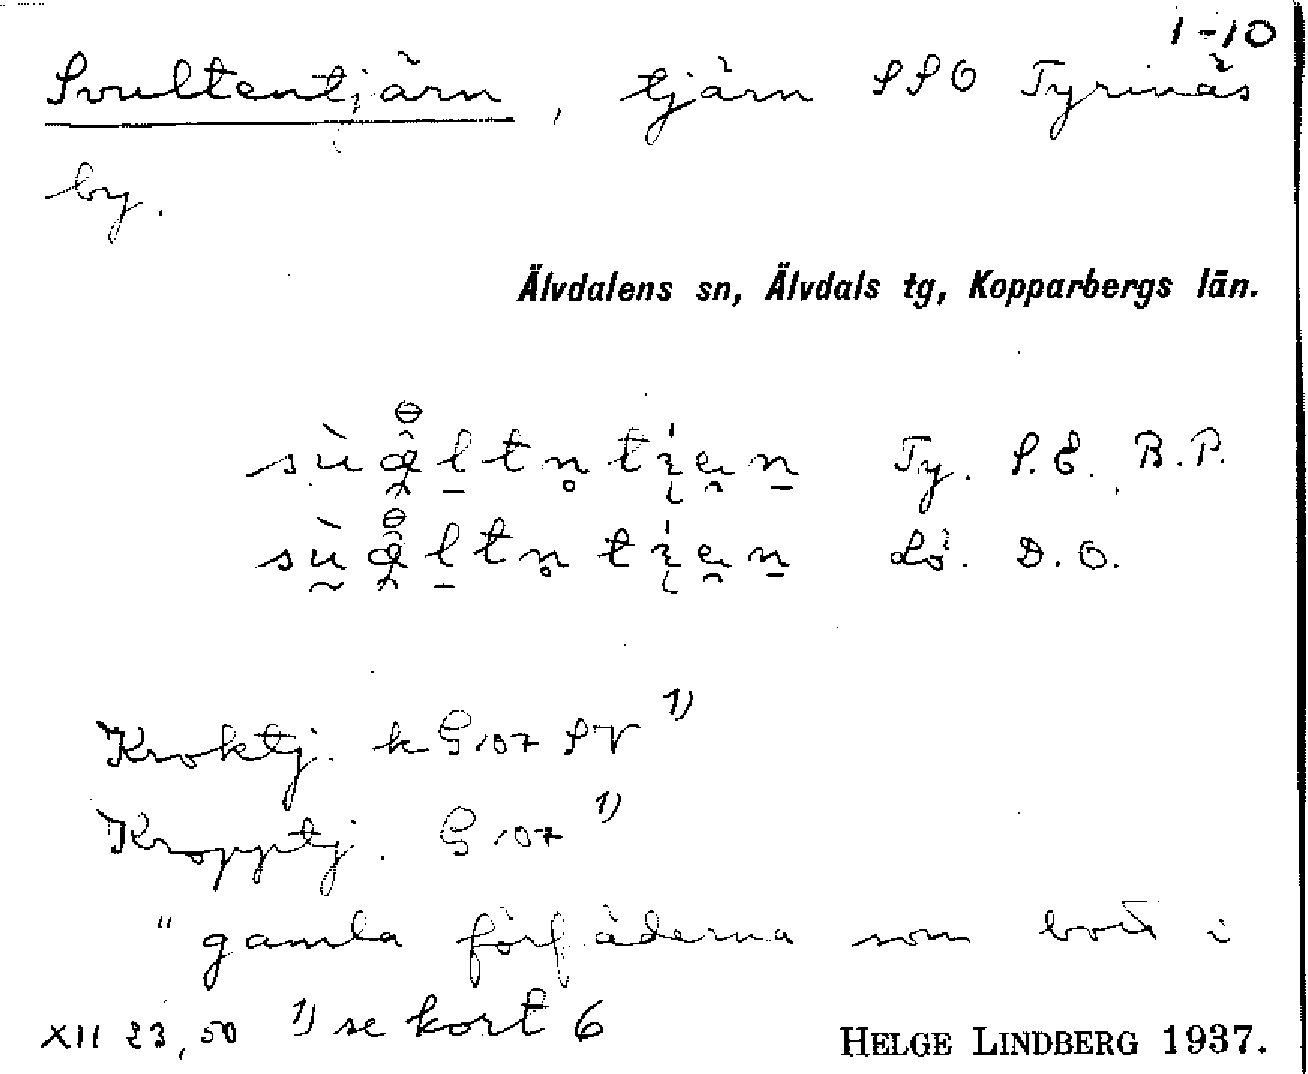 1-10
Svultentjärn, tjärn SSO Tyrinäs
by.
Älvdalens sn, Älvdals tg, Kopparbergs län.
Ty. S.E. B.P.
Lö. D.O.
Kroktj. k G 107 SV 1)
Kropptj. G 107 1)
"gamla förfäderna som bott i
XII 23, 50 1) se kort 6
HELGE LINDBERG 1937.